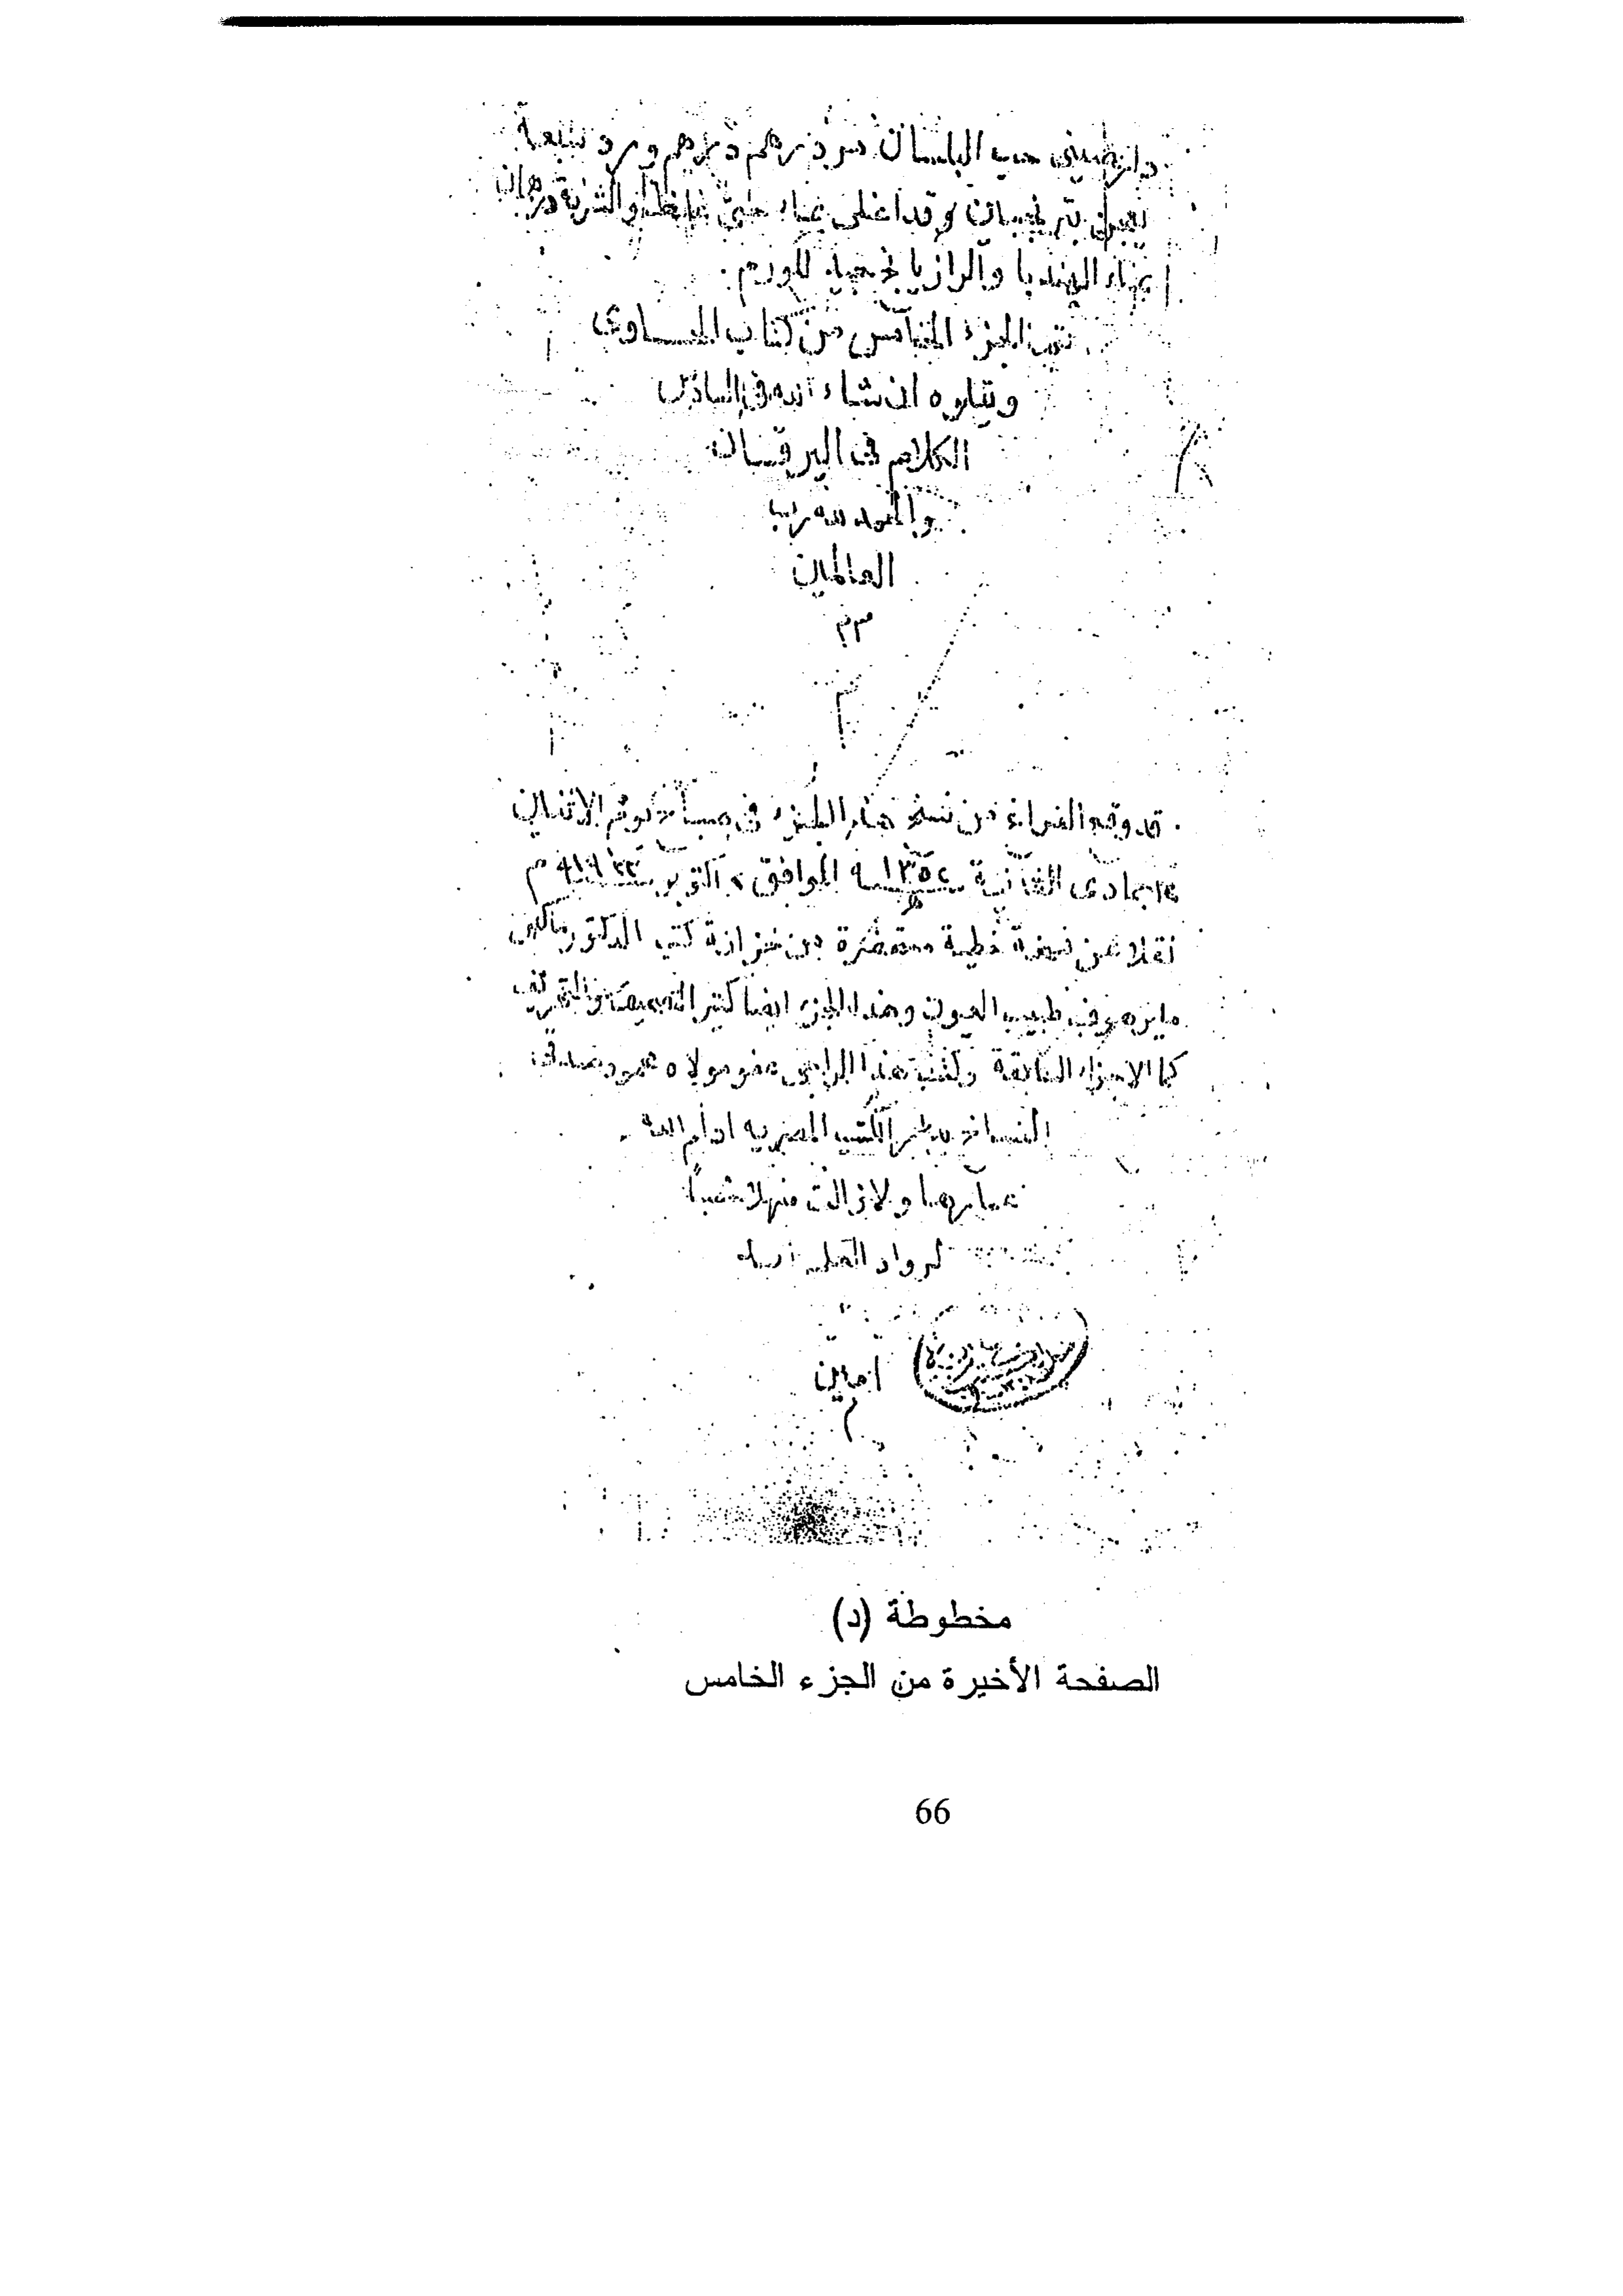 دارصينى حب البلسان من درهم درهم ورد سبعة
يعجن بترنجبين وقد اغلى بماء حتى غلظ والشربة درهمان
بماء الهندبا والرازيانج جيد للورم
تم الجزء الخامس من كتاب الحاوى
ويتلوه ان شاء الله فى السادس
الكلام فى اليرقان
والحمد لله رب
العالمين
قد وقع الفراغ من نسخ هذا الجزء فى مساء يوم الاثنين
جمادى الثانية ١٣٥٢ الموافق اكتوبر م
نقلا عن نسخة خطية من خزانة كتب الدكتور ماكس
مايرهوف طبيب العيون وهذا الجزء ايضا كثير التصحيف والتحريف
كما الاجزاء السابقة وكتب هذا الراجى عفو مولاه محمود صدقى
النساخ بدار الكتب المصريه ادام الله
عمارها ولا زالت منهلا عذبا
لرواد العلم
امين
مخطوطة (د)
الصفحة الأخيرة من الجزء الخامس
66